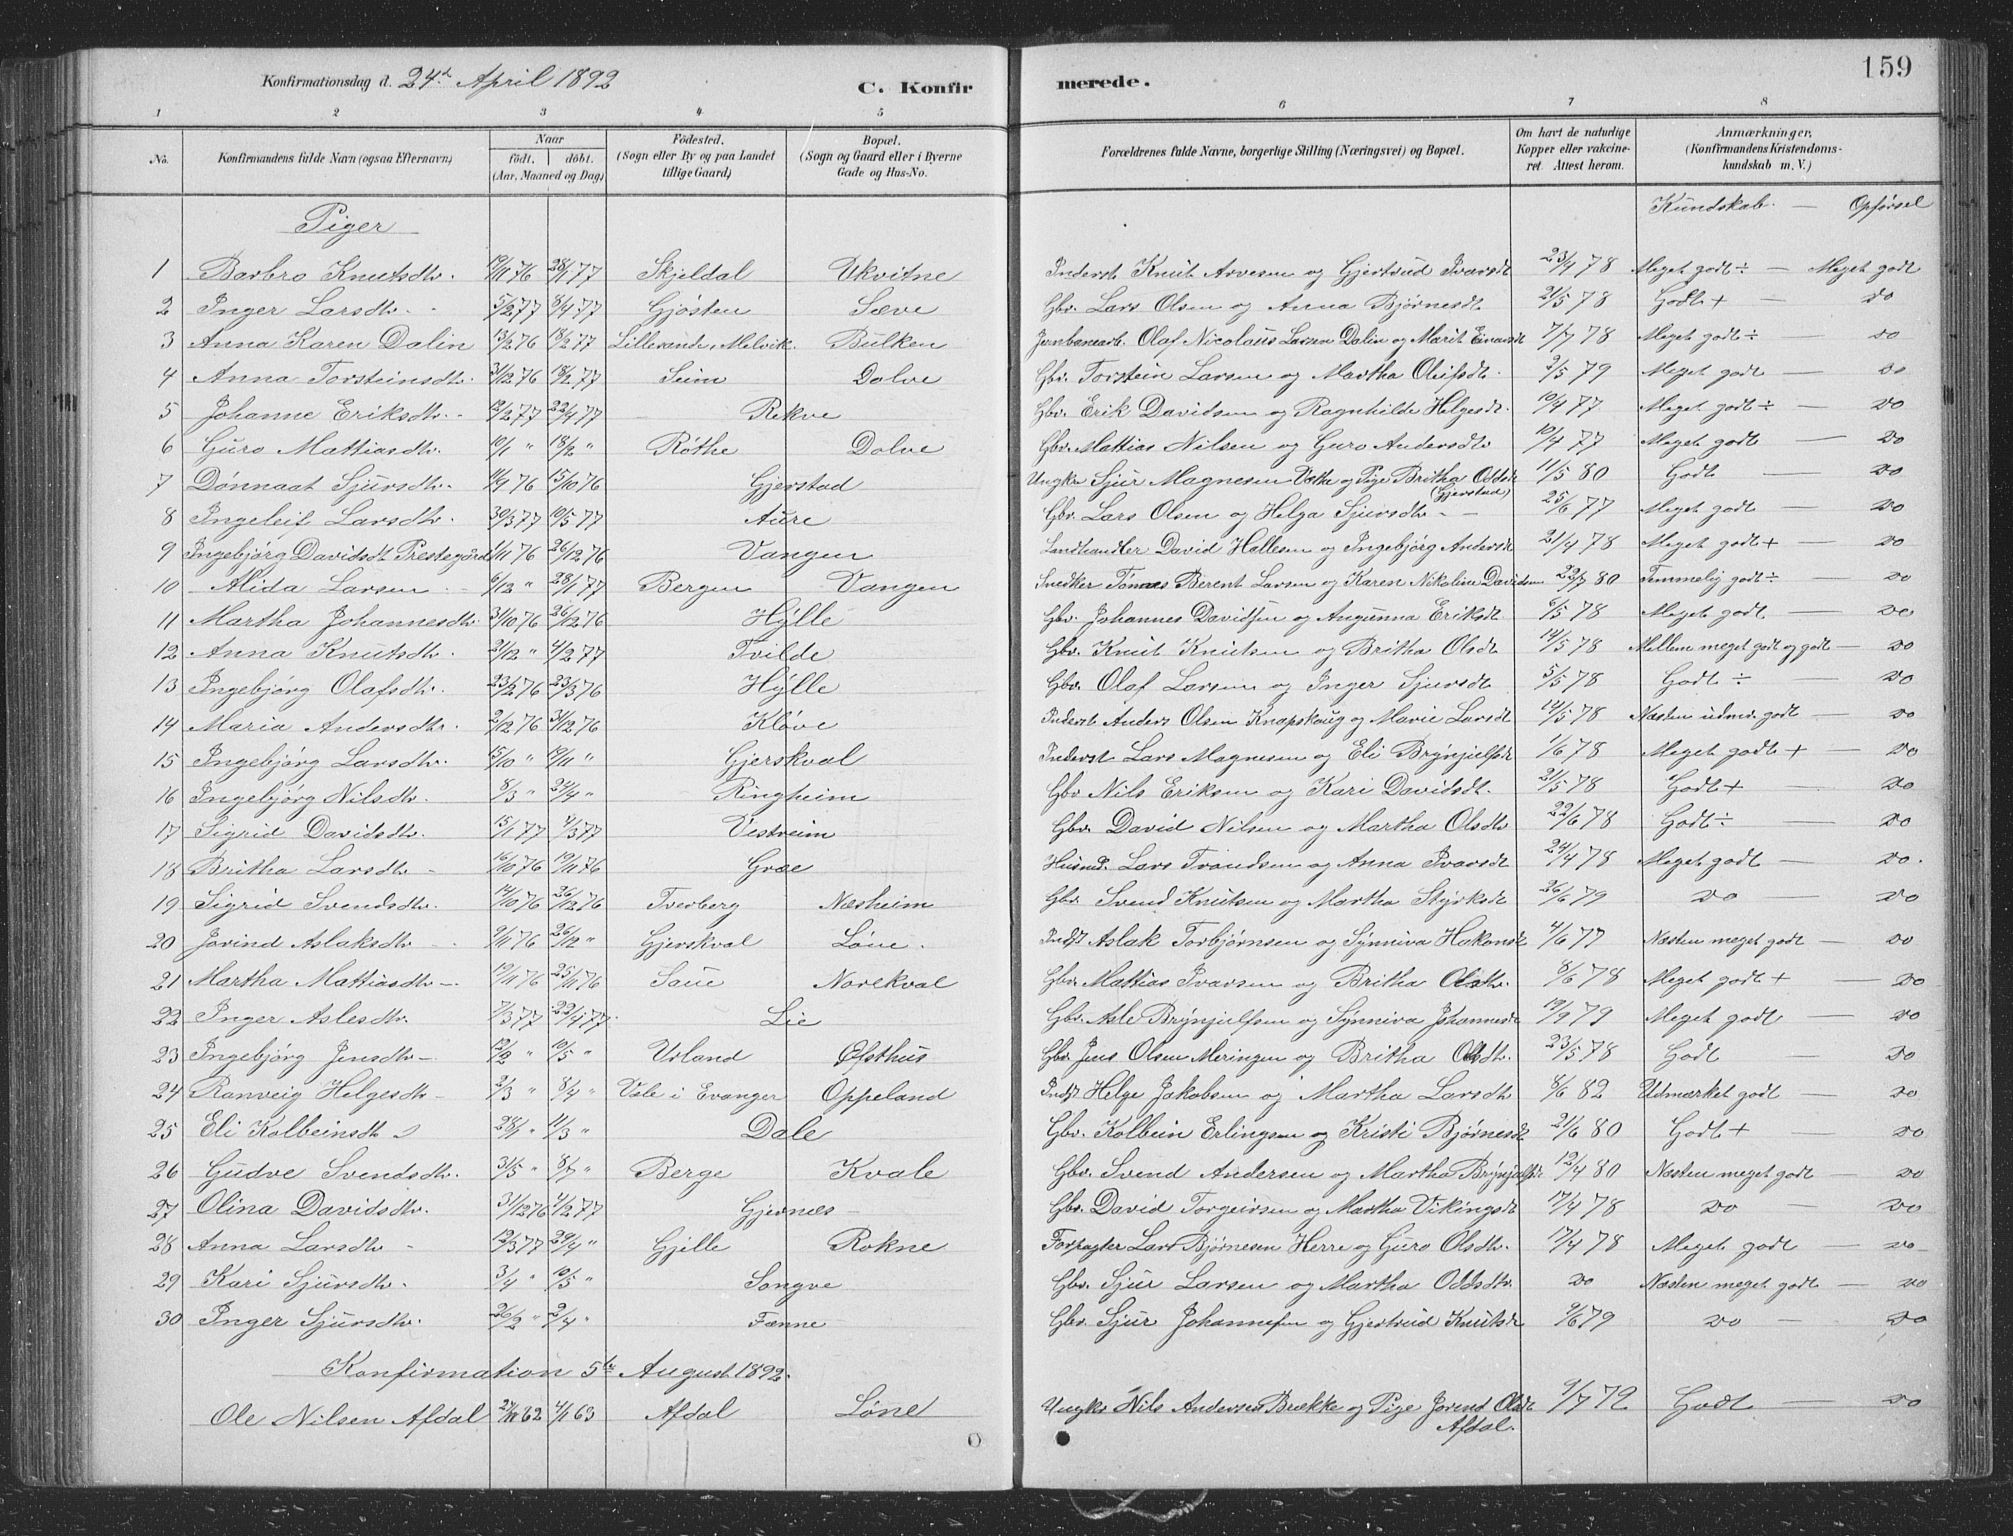 159
Konfirmationsdag d. 24de April 1892
C. Konfirmerede.
1 2 3 4 5 6 7 8
No. Konfirmandens fulde Navn (ogsaa Efternavn) Naar födt. döbt. (Aar, Maaned og Dag) Födested. (Sogn eller By og paa Landet tillige Gaard) Bopæl. (Sogn og Gaard eller i Byerne Gade og Hus-No. Forældrenes fulde Navne, borgerlige Stilling (Næringsvei) og Bopæl. Om havt de naturlige Kopper eller vakcineret. Attest herom. Anmærkninger. (Konfirmandens Kristendomskundskab m. V.)
Piger Kundskab. — Opførsel
1 Barbro Knutsdtr. 19/11 76 28/1 77 Skjeldal Ukvitne Inderst Knut Arvesen og Gjertrud Ivarsdt 23/9 78 Meget godt ÷ — Meget godt
2 Inger Larsdtr. 5/2 77 8/4 77 Gjøsten Sæve Gbr. Lars Olsen og Anna Bjørnesdt. 21/5 78 Godt + — do
3 Anna Karen Dalin 13/2 76 18/2 77 Lillesand, Melvik. Bulken Jernbanearb. Olaf Nicolaus Larsen Dalin og Marit Einarsdt 7/7 78 Meget godt ÷ — do
4 Anna Torsteinsdtr. 31/12 76 18/2 77 Seim Dolve Gbr. Torstein Larsen og Martha Oleifsdt. 2/5 79 Meget godt — do
5 Johanne Eriksdtr. 12/2 77 22/4 77 Rekve Gbr. Erik Davidsen og Ragnhilde Helgesdt. 10/4 77 Meget godt ÷ — do
6 Guro Mattiasdtr. 10/1 " 18/2 " Røthe Dolve Gbr. Mattias Nilsen og Guro Andersdtr 10/4 77 Meget godt — do
7 Dønnaat Sjursdtr. 14/9 76 15/10 76 Gjerstad Ungkr Sjur Magnesen Væthe og Pige Britha Oddsdt (Gjerstad) 11/5 80 Godt — do
8 Ingeleif Larsdtr. 30/3 77 10/5 77 Aure Gbr. Lars Olsen og Helga Sjursdtr. 25/6 77 Meget godt — do
9 Ingebjørg Davidsdt Prestegård 1/11 76 26/12 76 Vangen Landhandler David Hallesen og Ingebjørg Andersdt 21/4 78 Meget godt + — do
10 Alida Larsen 6/12 " 28/1 77 Bergen Vangen Snedker Tønnes Berent Larsen og Karen Nikoline Davidsen 22/7 80 Temmelig godt ÷ do
11 Martha Johannesdtr. 31/10 76 26/12 76 Hylle Gbr. Johannes Davidsen og Angunna Eriksdt. 6/5 78 Meget godt — do
12 Anna Knutsdtr. 21/12 " 4/2 77 Tvilde Gbr. Knut Knutsen og Britha Olsdt 14/5 78 Mellem meget godt og godt — do
13 Ingebjørg Olafsdtr. 23/2 76 23/3 76 Hylle Gbr. Olaf Larsen og Inger Sjursdt. 5/5 78 Godt ÷ — do
14 Maria Andersdtr. 2/12 76 31/12 76 Kløve Inderst Anders Olsen Knapskaug og Marie Larsdt 14/5 78 Næsten udmr. godt — do
15 Ingebjørg Larsdtr. 15/10 " 19/11 " Gjerskval Inderst Lars Magnesen og Eli Brynjulfsdt 1/6 78 Meget godt + — do
16 Ingebjørg Nilsdtr. 8/3 " 24/4 " Ringheim Gbr Nils Eriksen og Kari Davidsdt. 21/5 78 Godt + — do
17 Sigrid Davidsdtr. 15/1 77 4/3 77 Vestreim Gbr. David Nilsen og Martha Olsdtr 22/6 78 Godt ÷ — do
18 Britha Larsdtr. 16/10 76 19/11 76 Græe Husmd. Lars Trondsen og Anna Ivarsdt 24/4 78 Meget godt — do.
19 Sigrid Svendsdtr. 14/10 76 26/12 76 Tverberg Næsheim Gbr. Svend Knutsen og Martha Styrksdt 26/6 79 do — do
20 Jorind Aslaksdtr. 9/11 76 26/12 " Gjerskval Løne. Indst Aslak Torbjørnsen og Synniva Hakonsdt 4/6 77 Næsten meget godt — do
21 Martha Mattiasdtr. 19/11 76 25/11 76 Saue Norekval Gbr. Mattias Ivarsen og Britha Olsdtr. 8/6 78 Meget godt + — do
22 Inger Aslesdtr. 7/3 77 22/4 77 Lie Gbr. Asle Brynjulfsen og Synniva Johannesdt 19/9 79 Meget godt — do
23 Ingebjørg Jensdtr. 12/2 " 10/5 " Urland Øfsthus Gbr. Jens Olsen Meringen og Britha Olsdtr. 23/5 78 Godt — do
24 Ranveig Helgesdtr 2/3 " 8/4 " Vsle i Evanger Oppeland Indst Helge Jakobsen og Martha Larsdtr 8/6 82 Udmærket godt — do
25 Eli Kolbeinsdtr 28/1 " 11/3 " Dale Gbr. Kolbein Erlingsen og Kristi Bjørnesdt 21/6 80 Godt + — do
26 Gudve Svendsdtr. 31/5 " 8/7 " Berge Kvale Gbr. Svend Andersen og Martha Brynjulfsdt 12/4 80 Næsten meget godt — do
27 Olina Davidsdtr. 31/12 76 4/2 77 Gjernæs Gbr. David Torgeirsen og Martha Vikingsdt 17/4 78 do — do
28 Anna Larsdtr 12/3 77 29/4 " Gjelle Rokne Forpagter Lars Bjørnesen Herre og Guro Olsdtr. 17/4 78 Meget godt — do
29 Kari Sjursdtr. 3/4 " 10/5 " Songve Gbr. Sjur Larsen og Martha Oddsdtr. do Næsten meget godt — do
30 Inger Sjursdtr. 26/2 " 2/4 " Fænne Gbr. Sjur Johannesen og Gjertrud Knutsdt 9/6 79 do — do
Konfirmation 5te August 1892.
Ole Nilsen Afdal 27/11 62 4/1 63 Afdal Løne Ungkr Nils Andersen Brække og Pige Jorend Olsdt Afdal. 9/7 72 Godt — do